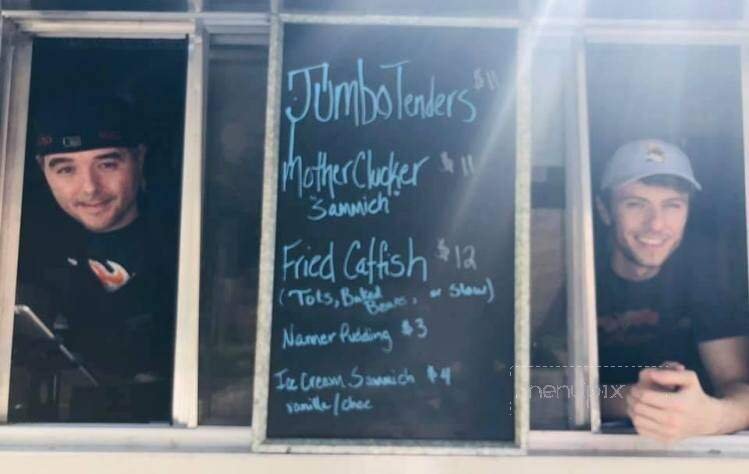 Jumbo Tenders $11
Mother Clucker $11
"Sammich"
Fried Catfish $12
(Tots, Baked Beans, or Slaw)
Nanner Pudding $3
Ice Cream Sammich $4
vanilla/choc
menupix